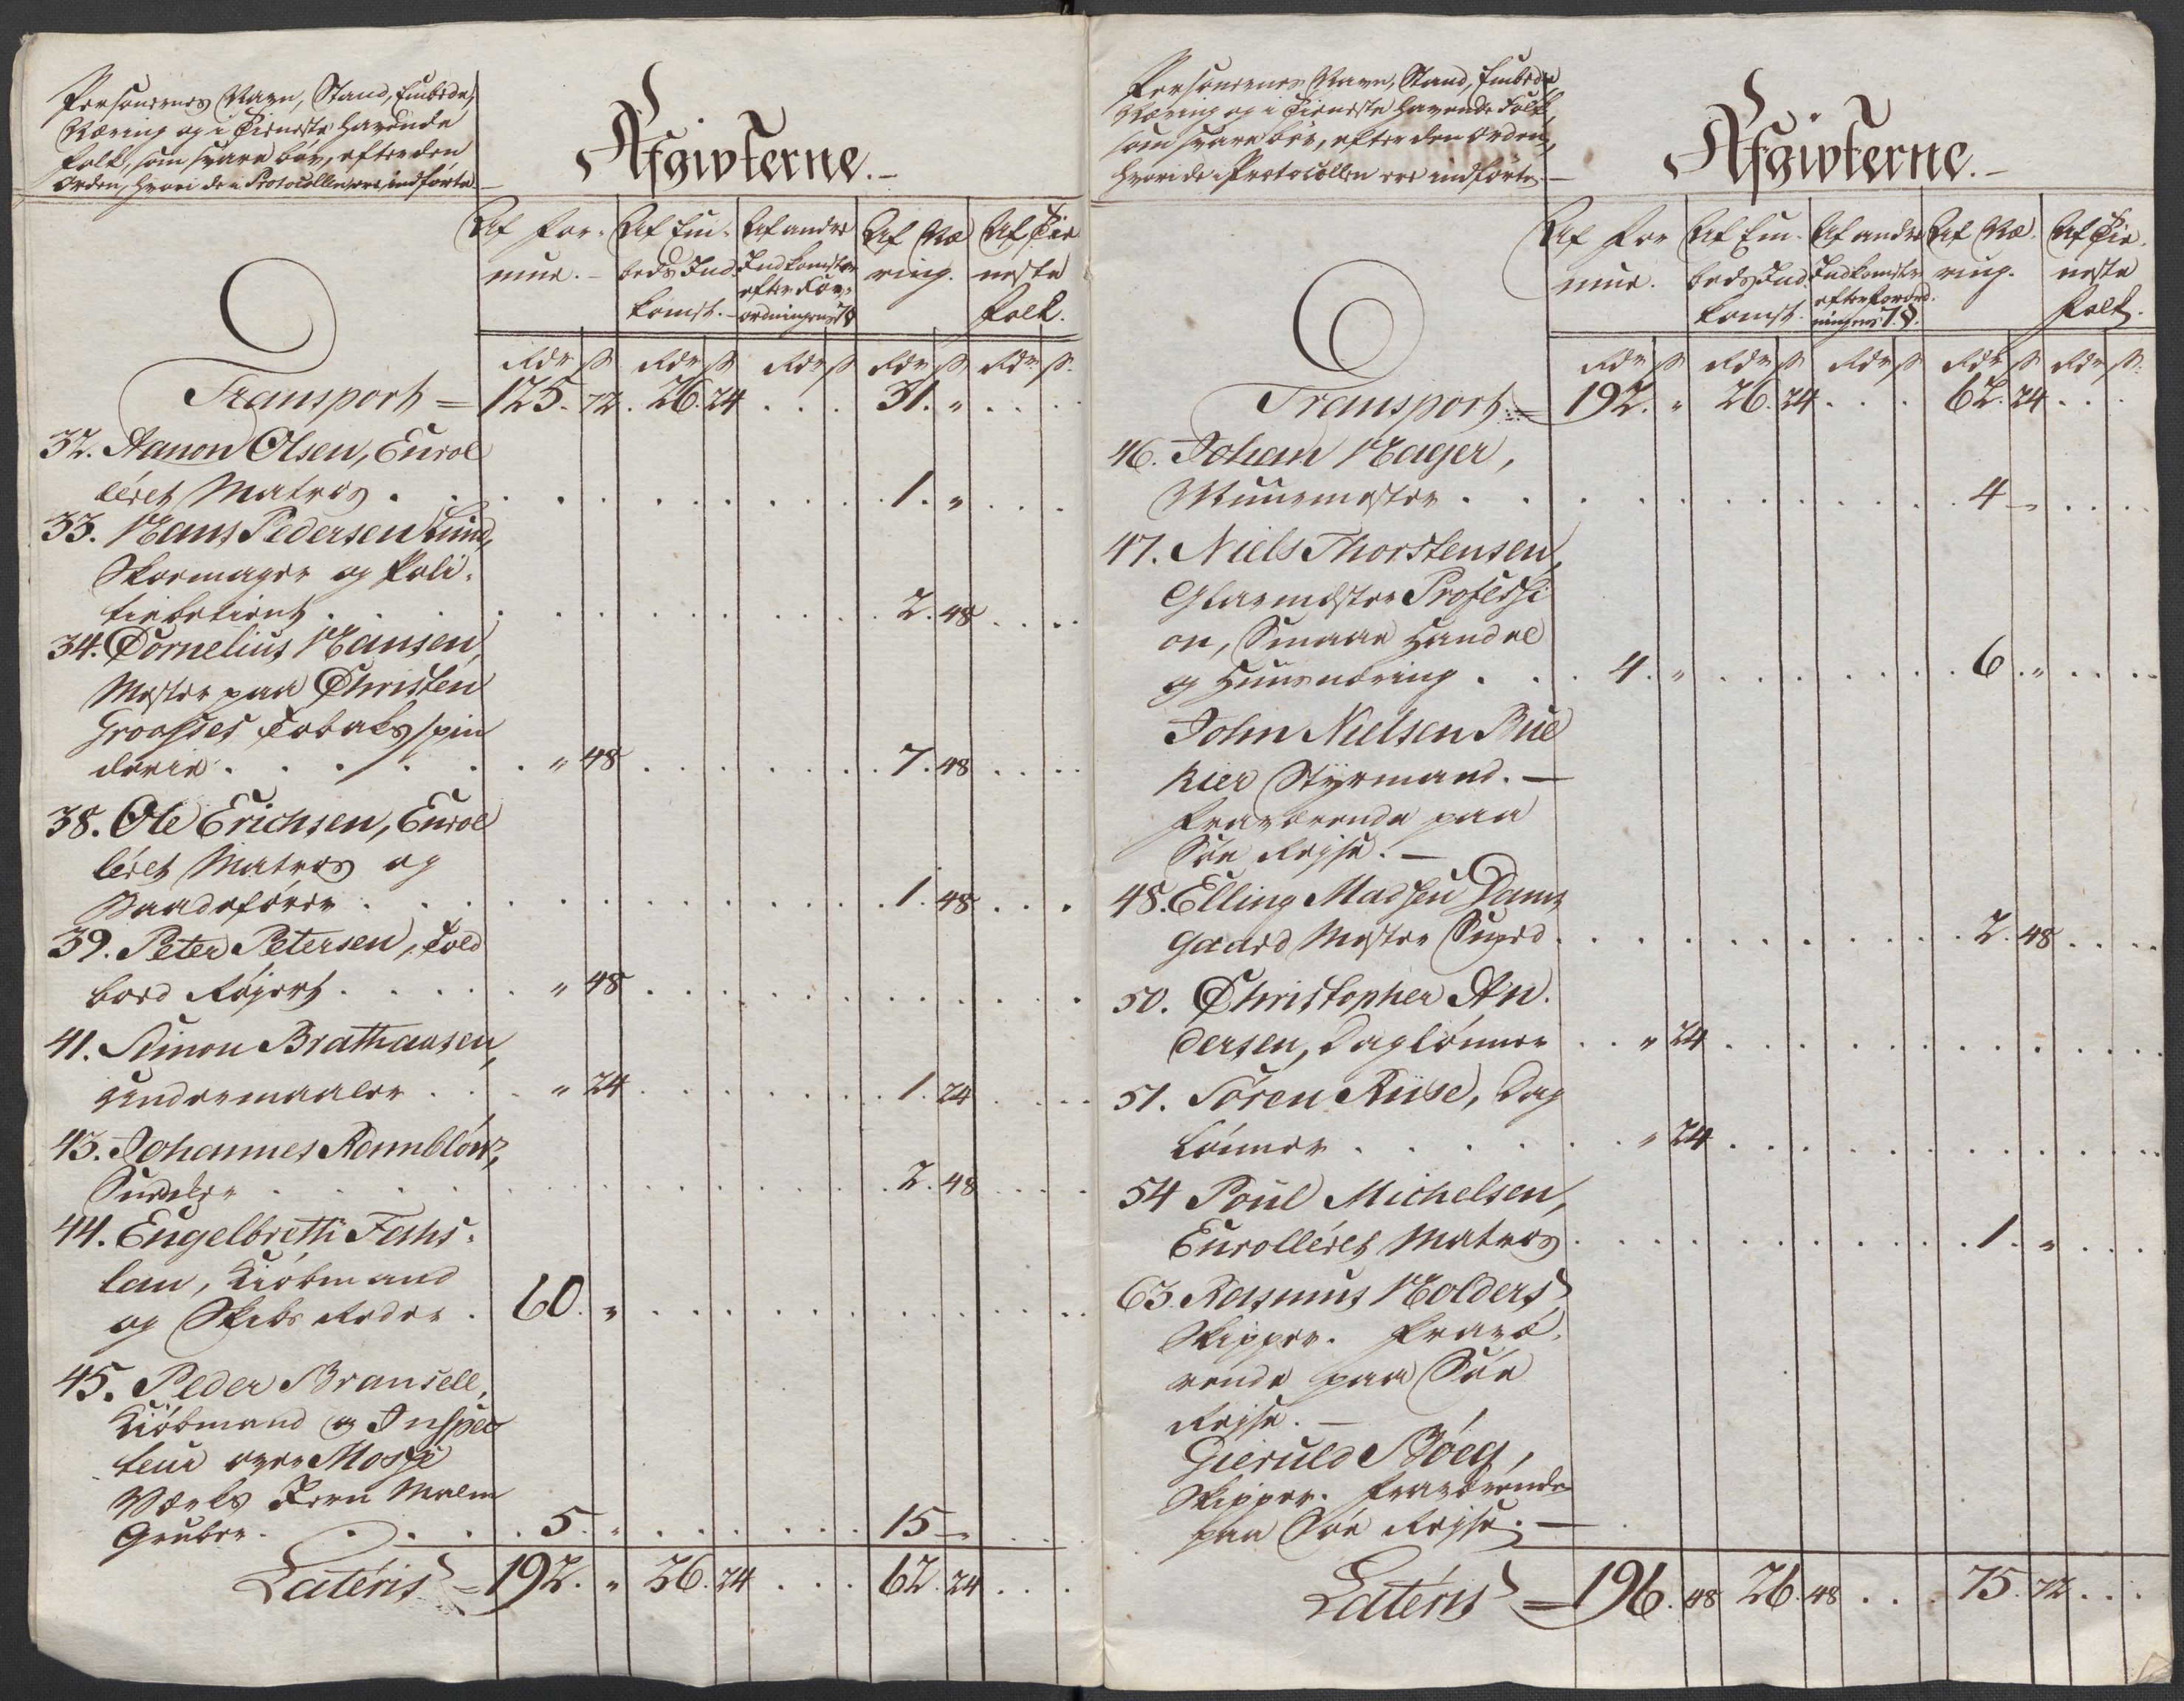 Personernes Navn, Stand, Embede,
Næring og i Tieneste havende
Folk, som svare bør, efter den
Orden, hvori de i Protocollen ere indførte
Afgivterne.
Af For-
mue.
Af Em-
beds Ind-
komst.
Af andre
Indkomster
efter For-
ordningens 7 §
Af Næ
ring.
Af Tie
neste
Folk.
Rdr ß Rdr ß Rdr ß Rdr ß Rdr ß.
Transport = 125. 72. 26. 24 . . . 31. " . . . .
32. Aanon Olsen, Enrol
léret Matros . . . . 1. " . . .
33. Hans Pedersen Lund,
Skomager og Poli-
tiebetient . . . . 2. 48 . . . .
34. Cornelius Hansen,
Mester paa Christen
Groosses Tobaks spin
derie . . . . " 48 . . . . 7. 48 . . . .
38. Ole Erichsen, Enrol
léret Matros og
Baadsfører . . . . 1. 48 . . .
39. Peter Petersen, Told
boed Røgert . . . . " 48 . . . .
41. Simon Brathausen,
Undermaaler . . . " 24 . . . . 1. 24 . . . .
43. Johannes Rømblow,
Snedker . . . . 2. 48 . . . .
44. Engelbreth Fehs-
lau, Kiöbmand
og Skibs Reder . 60. " . . . .
45. Peder Bransell,
Kiöbmand og Inspec
teur over Mosse
Værks Jern Malm
Gruber . . . . 5. " . . . . 15 — " . . .
Lateris = 192. " 26. 24 . . . 62. 24 . . .
Personernes Navn, Stand, Embede
Næring og i Tieneste havende Folk,
som svare bør, efter den Orden,
hvori de i Protocollen ere indførte.
Afgivterne.
Af For
mue.
Af Em-
beds Ind
komst.
Af andre
Indkomster
efter Forord-
ningens 7. §.
Af Næ-
ring.
Af Tie-
neste
Folk.
Rdr ß Rdr ß Rdr ß Rdr ß Rdr ß.
Transport = 192. " 26. 24 . . . 62. 24 . . .
46. Johan Hager,
Muurmester . . . . 4 — " . . . .
47. Niels Thorstensen,
Glarmester Professi
on, Smaae Handel
og Huusnæring . . . 4. " . . . . 6. " . . . .
John Nielsen Bue
kier Styrmand. —
fraværende paa
Söe Rejse. —
48. Elling Madsen Dams
gaard Mester Smed . . . . 2. 48 . . . .
50. Christopher An-
dersen, Daglønner . . " 24 . . . .
51. Sören Riise, Dag
lønner . . . . " 24 . . . .
54 Poul Michelsen,
Enrolléret Matros . . . . 1. " . . . .
63. Rasmus Holders
Skipper. fravæ-
rende paa Söe
Rejse. —
Gieruld Böeg,
Skipper. fraværende
paa Söe Rejse. —
Lateris = 196. 48 26. 48 . . . 75. 72 . . .